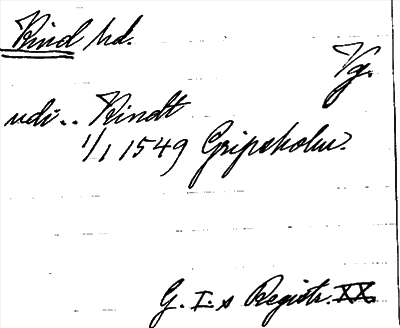 Kind hd.
Vg.
udi.. Kindt
1/1 1549 Gripsholm.
G. I:s Registr. XX.